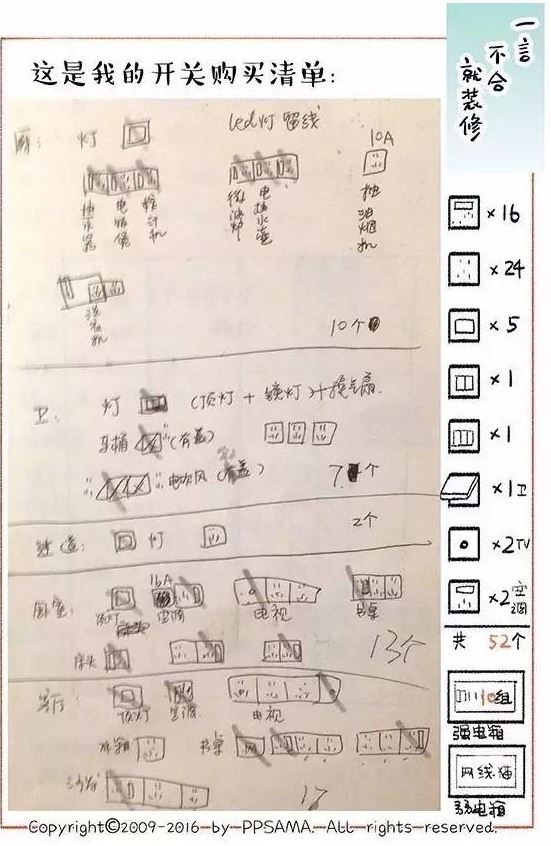 一言
不合
就装修
这是我的开关购买清单:
厨: 灯 led灯 留线 10A
抽油烟机
洗衣机
10个
×16
×24
×5
×1
×1
×1卫
×2TV
×2空调
共 52个
10组
强电箱
网线猫
弱电箱
卫: 灯 (顶灯 + 镜灯)+换气扇
马桶 (有盖)
电吹风 (有盖)
7 个
过道: 灯
2个
卧室: 顶灯
16A
空调
电视
书桌
床头
13个
客厅: 顶灯 空调 电视
冰箱 书桌 网
沙发
17
Copyright©2009-2016 by PPSAMA. All rights reserved.